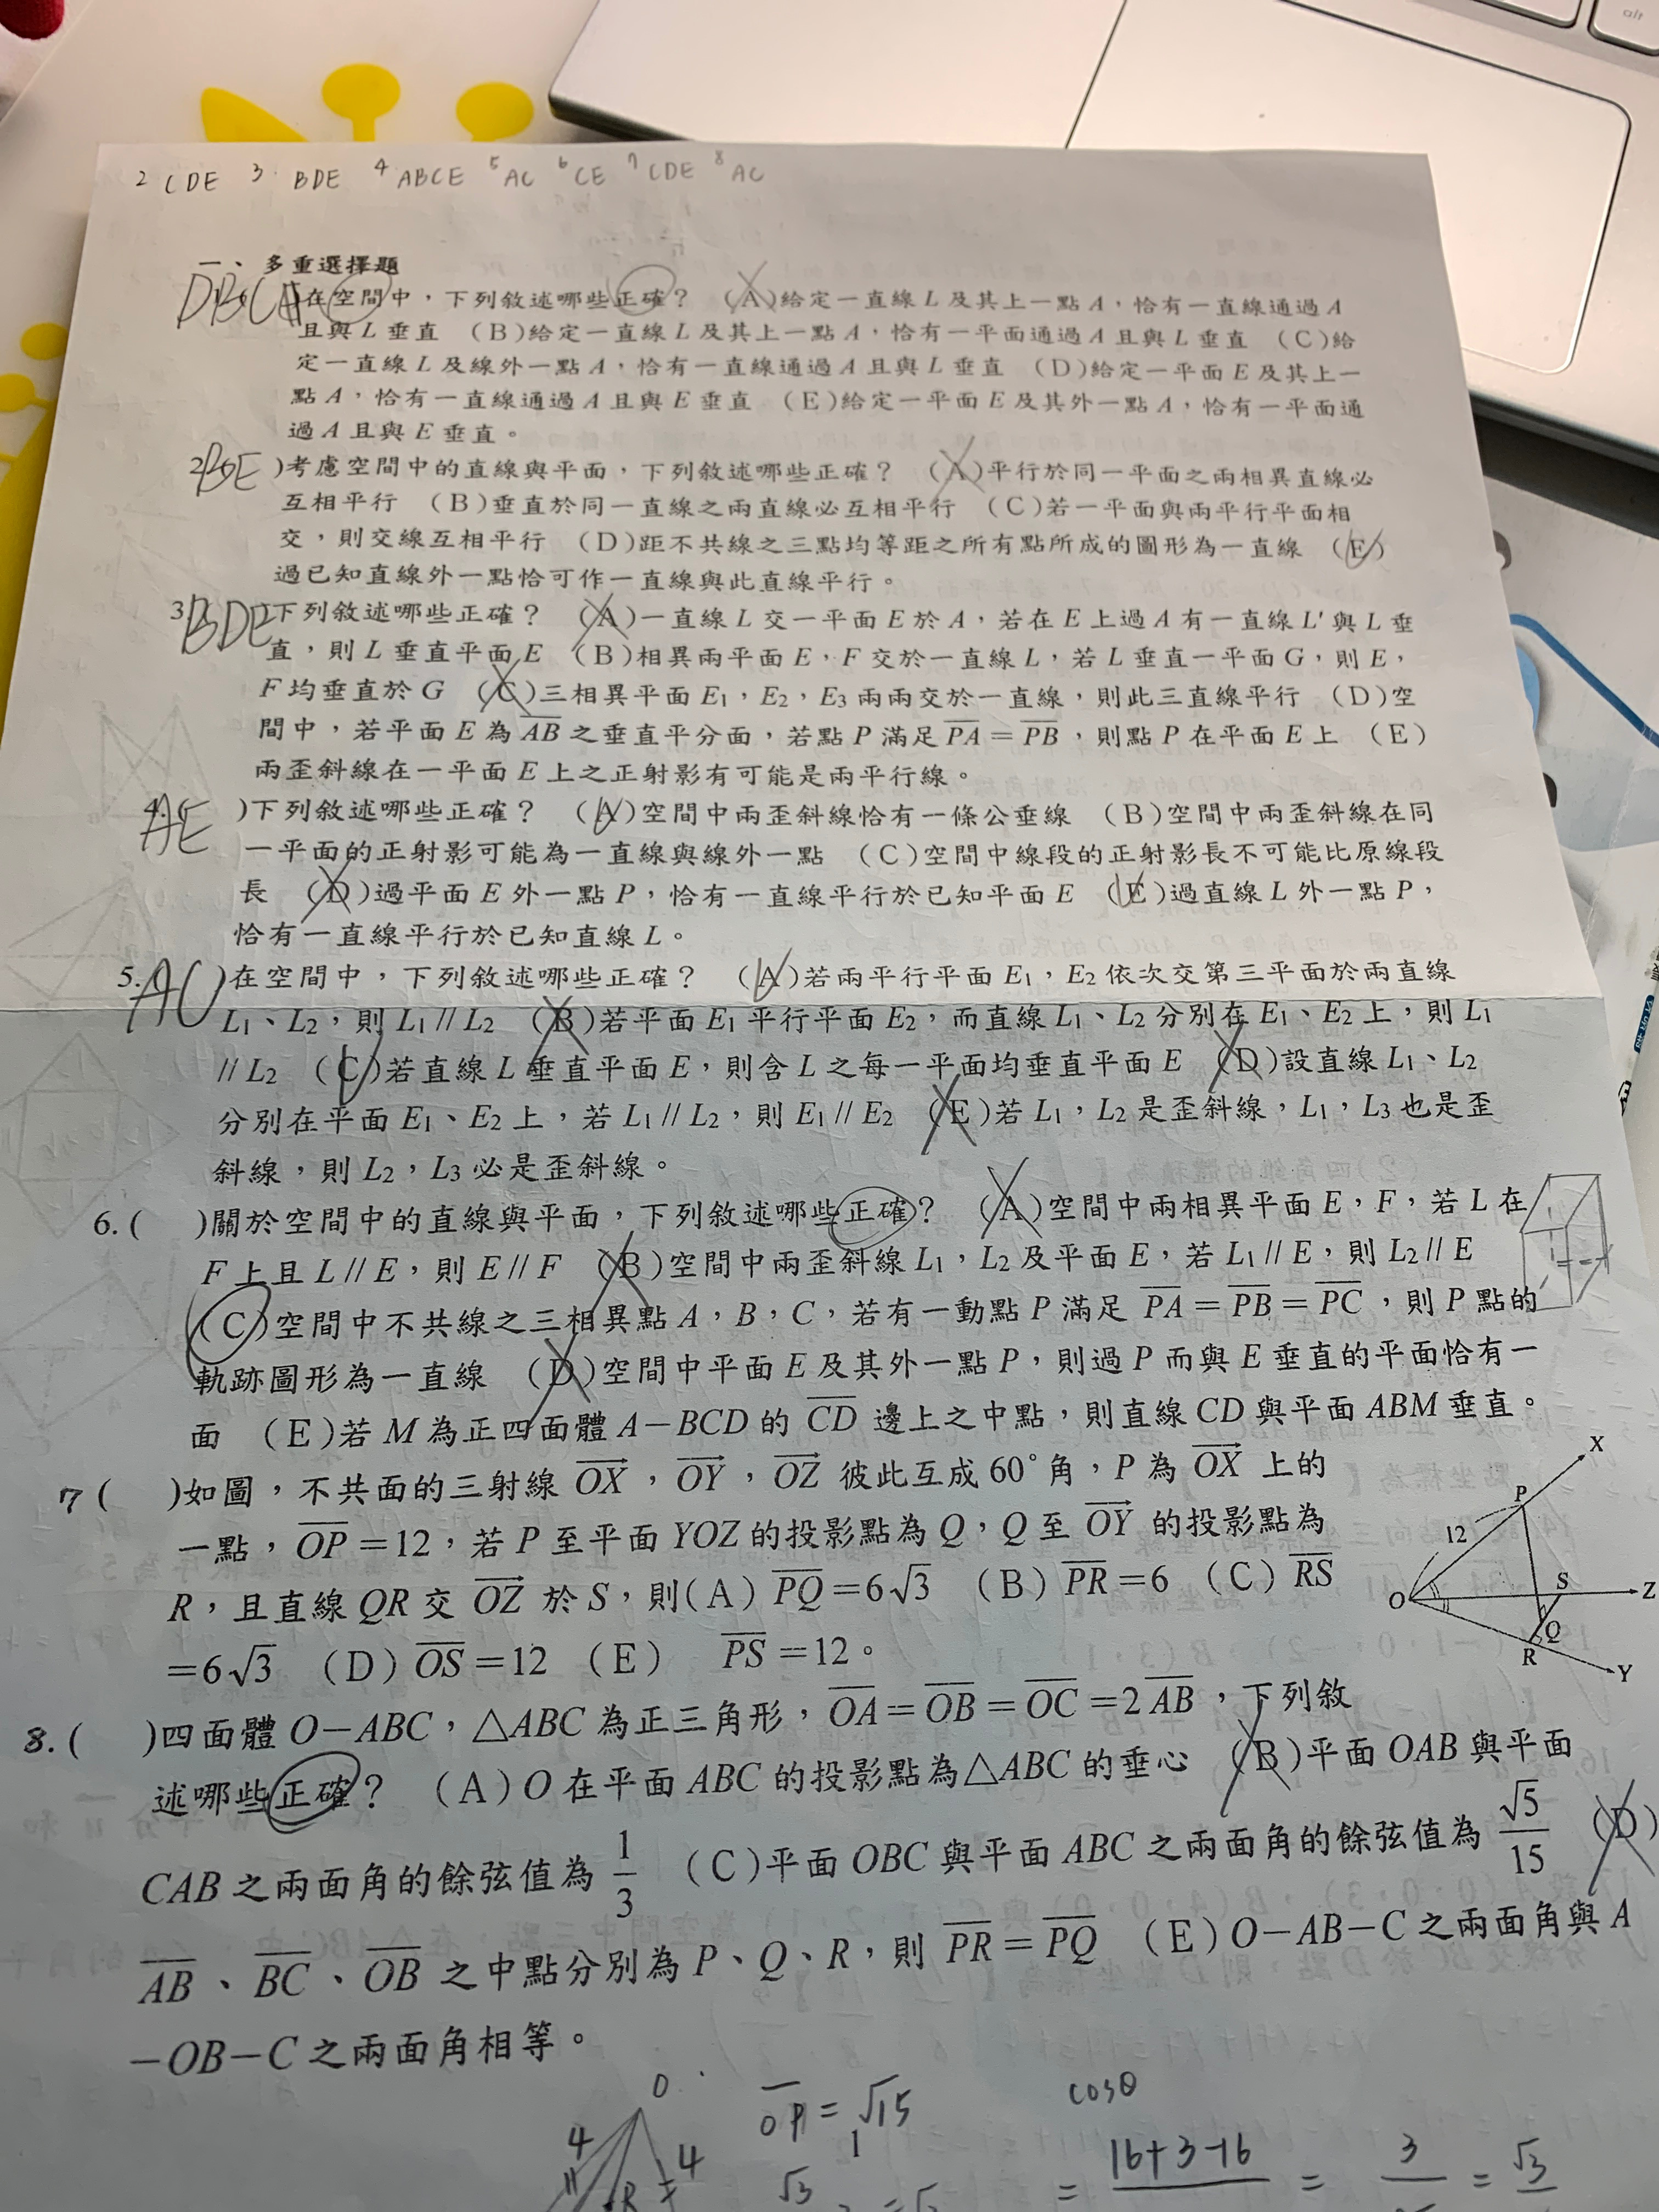 2 CDE 3. BDE 4 ABCE 5 AC 6 CE 7 CDE 8 AC
alt
一、多重選擇題
DBCA )在空間中，下列敘述哪些正確？ (A)給定一直線 L 及其上一點 A，恰有一直線通過 A
且與 L 垂直 (B)給定一直線 L 及其上一點 A，恰有一平面通過 A 且與 L 垂直 (C)給
定一直線 L 及線外一點 A，恰有一直線通過 A 且與 L 垂直 (D)給定一平面 E 及其上一
點 A，恰有一直線通過 A 且與 E 垂直 (E)給定一平面 E 及其外一點 A，恰有一平面通
過 A 且與 E 垂直。
2 )考慮空間中的直線與平面，下列敘述哪些正確？ (A)平行於同一平面之兩相異直線必
互相平行 (B)垂直於同一直線之兩直線必互相平行 (C)若一平面與兩平行平面相
交，則交線互相平行 (D)距不共線之三點均等距之所有點所成的圖形為一直線 (E)
過已知直線外一點恰可作一直線與此直線平行。
3 BDE 下列敘述哪些正確？ (A)一直線 L 交一平面 E 於 A，若在 E 上過 A 有一直線 L' 與 L 垂
直，則 L 垂直平面 E (B)相異兩平面 E，F 交於一直線 L，若 L 垂直一平面 G，則 E，
F 均垂直於 G (C)三相異平面 E₁，E₂，E₃ 兩兩交於一直線，則此三直線平行 (D)空
間中，若平面 E 為 \overline{AB} 之垂直平分面，若點 P 滿足 \overline{PA} = \overline{PB}，則點 P 在平面 E 上 (E)
兩歪斜線在一平面 E 上之正射影有可能是兩平行線。
4. AE )下列敘述哪些正確？ (A)空間中兩歪斜線恰有一條公垂線 (B)空間中兩歪斜線在同
一平面的正射影可能為一直線與線外一點 (C)空間中線段的正射影長不可能比原線段
長 (D)過平面 E 外一點 P，恰有一直線平行於已知平面 E (E)過直線 L 外一點 P，
恰有一直線平行於已知直線 L。
5. AC )在空間中，下列敘述哪些正確？ (A)若兩平行平面 E₁，E₂ 依次交第三平面於兩直線
L₁、L₂，則 L₁ // L₂ (B)若平面 E₁ 平行平面 E₂，而直線 L₁、L₂ 分別在 E₁、E₂ 上，則 L₁
// L₂ (C)若直線 L 垂直平面 E，則含 L 之每一平面均垂直平面 E (D)設直線 L₁、L₂
分別在平面 E₁、E₂ 上，若 L₁ // L₂，則 E₁ // E₂ (E)若 L₁，L₂ 是歪斜線，L₁，L₃ 也是歪
斜線，則 L₂，L₃ 必是歪斜線。
6. ( )關於空間中的直線與平面，下列敘述哪些正確？ (A)空間中兩相異平面 E，F，若 L 在
F 上且 L // E，則 E // F (B)空間中兩歪斜線 L₁，L₂ 及平面 E，若 L₁ // E，則 L₂ // E
(C)空間中不共線之三相異點 A，B，C，若有一動點 P 滿足 \overline{PA} = \overline{PB} = \overline{PC}，則 P 點的
軌跡圖形為一直線 (D)空間中平面 E 及其外一點 P，則過 P 而與 E 垂直的平面恰有一
面 (E)若 M 為正四面體 A－BCD 的 \overline{CD} 邊上之中點，則直線 CD 與平面 ABM 垂直。
7 ( )如圖，不共面的三射線 \overrightarrow{OX}，\overrightarrow{OY}，\overrightarrow{OZ} 彼此互成 60° 角，P 為 \overrightarrow{OX} 上的
一點，\overline{OP} = 12，若 P 至平面 YOZ 的投影點為 Q，Q 至 \overrightarrow{OY} 的投影點為
R，且直線 QR 交 \overrightarrow{OZ} 於 S，則(A) \overline{PQ} = 6√3 (B) \overline{PR} = 6 (C) \overline{RS}
= 6√3 (D) \overline{OS} = 12 (E) \overline{PS} = 12。
X
P
12
O
S
Z
Q
R
Y
8. ( )四面體 O－ABC，△ABC 為正三角形，\overline{OA} = \overline{OB} = \overline{OC} = 2\overline{AB}，下列敘
述哪些正確？ (A) O 在平面 ABC 的投影點為△ABC 的垂心 (B)平面 OAB 與平面
CAB 之兩面角的餘弦值為 1/3 (C)平面 OBC 與平面 ABC 之兩面角的餘弦值為 √5/15 (D)
\overline{AB}、\overline{BC}、\overline{OB} 之中點分別為 P、Q、R，則 \overline{PR} = \overline{PQ} (E) O－AB－C 之兩面角與 A
－OB－C 之兩面角相等。
O
4
4
R
\overline{OP} = √15
1
√3
cosθ
= 16+3-16 = 3 = √3